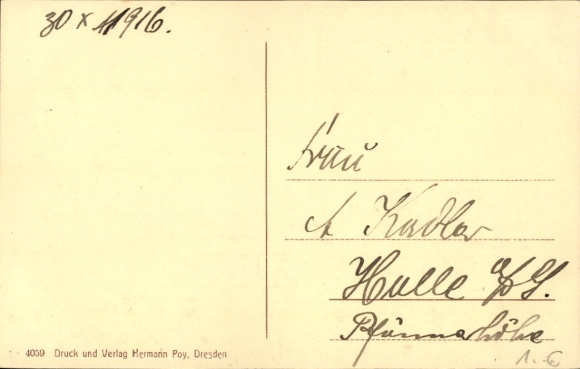 30 X 1916.
Frau
A Kadler
Halle a/S.
Pfännerhöhe
4059 Druck und Verlag Hermann Poy, Dresden
1.-€